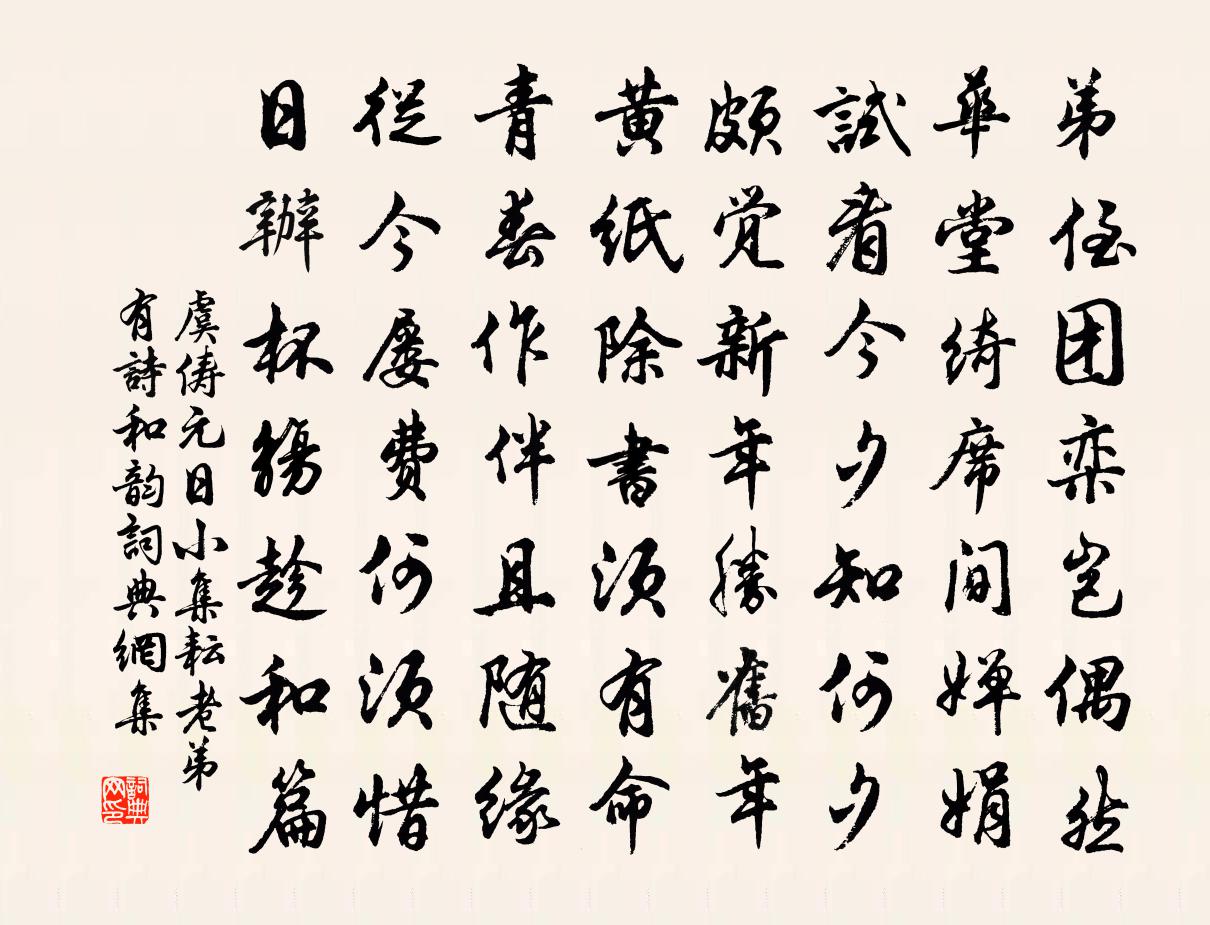 弟侄团栾岂偶然
華堂綺席间婵娟
試看今夕知何夕
頗觉新年勝舊年
黄紙除書须有命
青春作伴且随缘
從今屡费何须惜
日辦杯觞趁和篇
虞俦元日小集耘老弟
有詩和韵詞典網集
詞典
网印